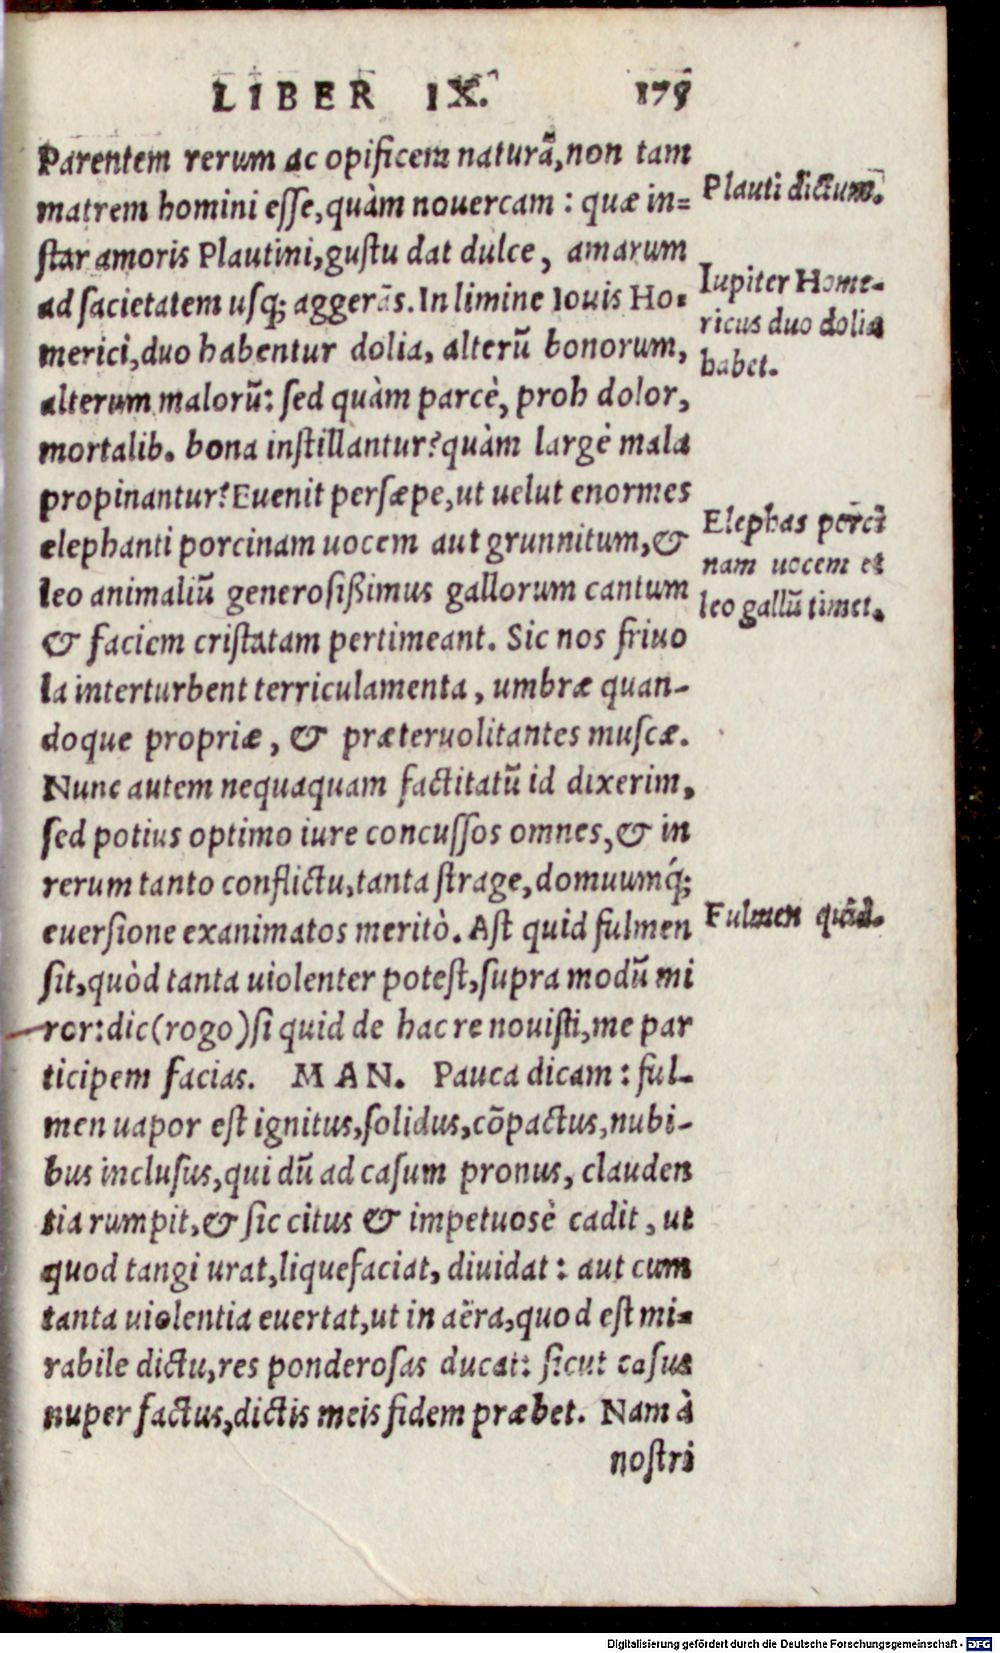 LIBER IX. 175
Parentem rerum ac opificem naturã, non tam
matrem homini esse, quàm nouercam : quæ in-
star amoris Plautini, gustu dat dulce, amarum
ad sacietatem usq; aggerãs. In limine Iouis Ho-
merici, duo habentur dolia, alterũ bonorum,
alterum malorũ: sed quàm parcè, proh dolor,
mortalib. bona instillantur? quàm largè mala
propinantur? Euenit persæpe, ut uelut enormes
elephanti porcinam uocem aut grunnitum, &
leo animaliũ generosißimus gallorum cantum
& faciem cristatam pertimeant. Sic nos friuo
la interturbent terriculamenta, umbræ quan-
doque propriæ, & præteruolitantes muscæ.
Nunc autem nequaquam factitatũ id dixerim,
sed potius optimo iure concussos omnes, & in
rerum tanto conflictu, tanta strage, domuumq́;
euersione exanimatos meritò. Ast quid fulmen
sit, quòd tanta uiolenter potest, supra modũ mi
ror: dic (rogo) si quid de hac re nouisti, me par
ticipem facias. MAN. Pauca dicam : ful-
men uapor est ignitus, solidus, cõpactus, nubi-
bus inclusus, qui dũ ad casum pronus, clauden
tia rumpit, & sic citus & impetuosè cadit, ut
quod tangi urat, liquefaciat, diuidat : aut cum
tanta uiolentia euertat, ut in aëra, quod est mi-
rabile dictu, res ponderosas ducat: sicut casus
nuper factus, dictis meis fidem præbet. Nam à
nostri
Plauti dictum.
Iupiter Home-
ricus duo dolia
habet.
Elephas porci
nam uocem et
leo gallũ timet.
Fulmen quid.
Digitalisierung gefördert durch die Deutsche Forschungsgemeinschaft - DFG